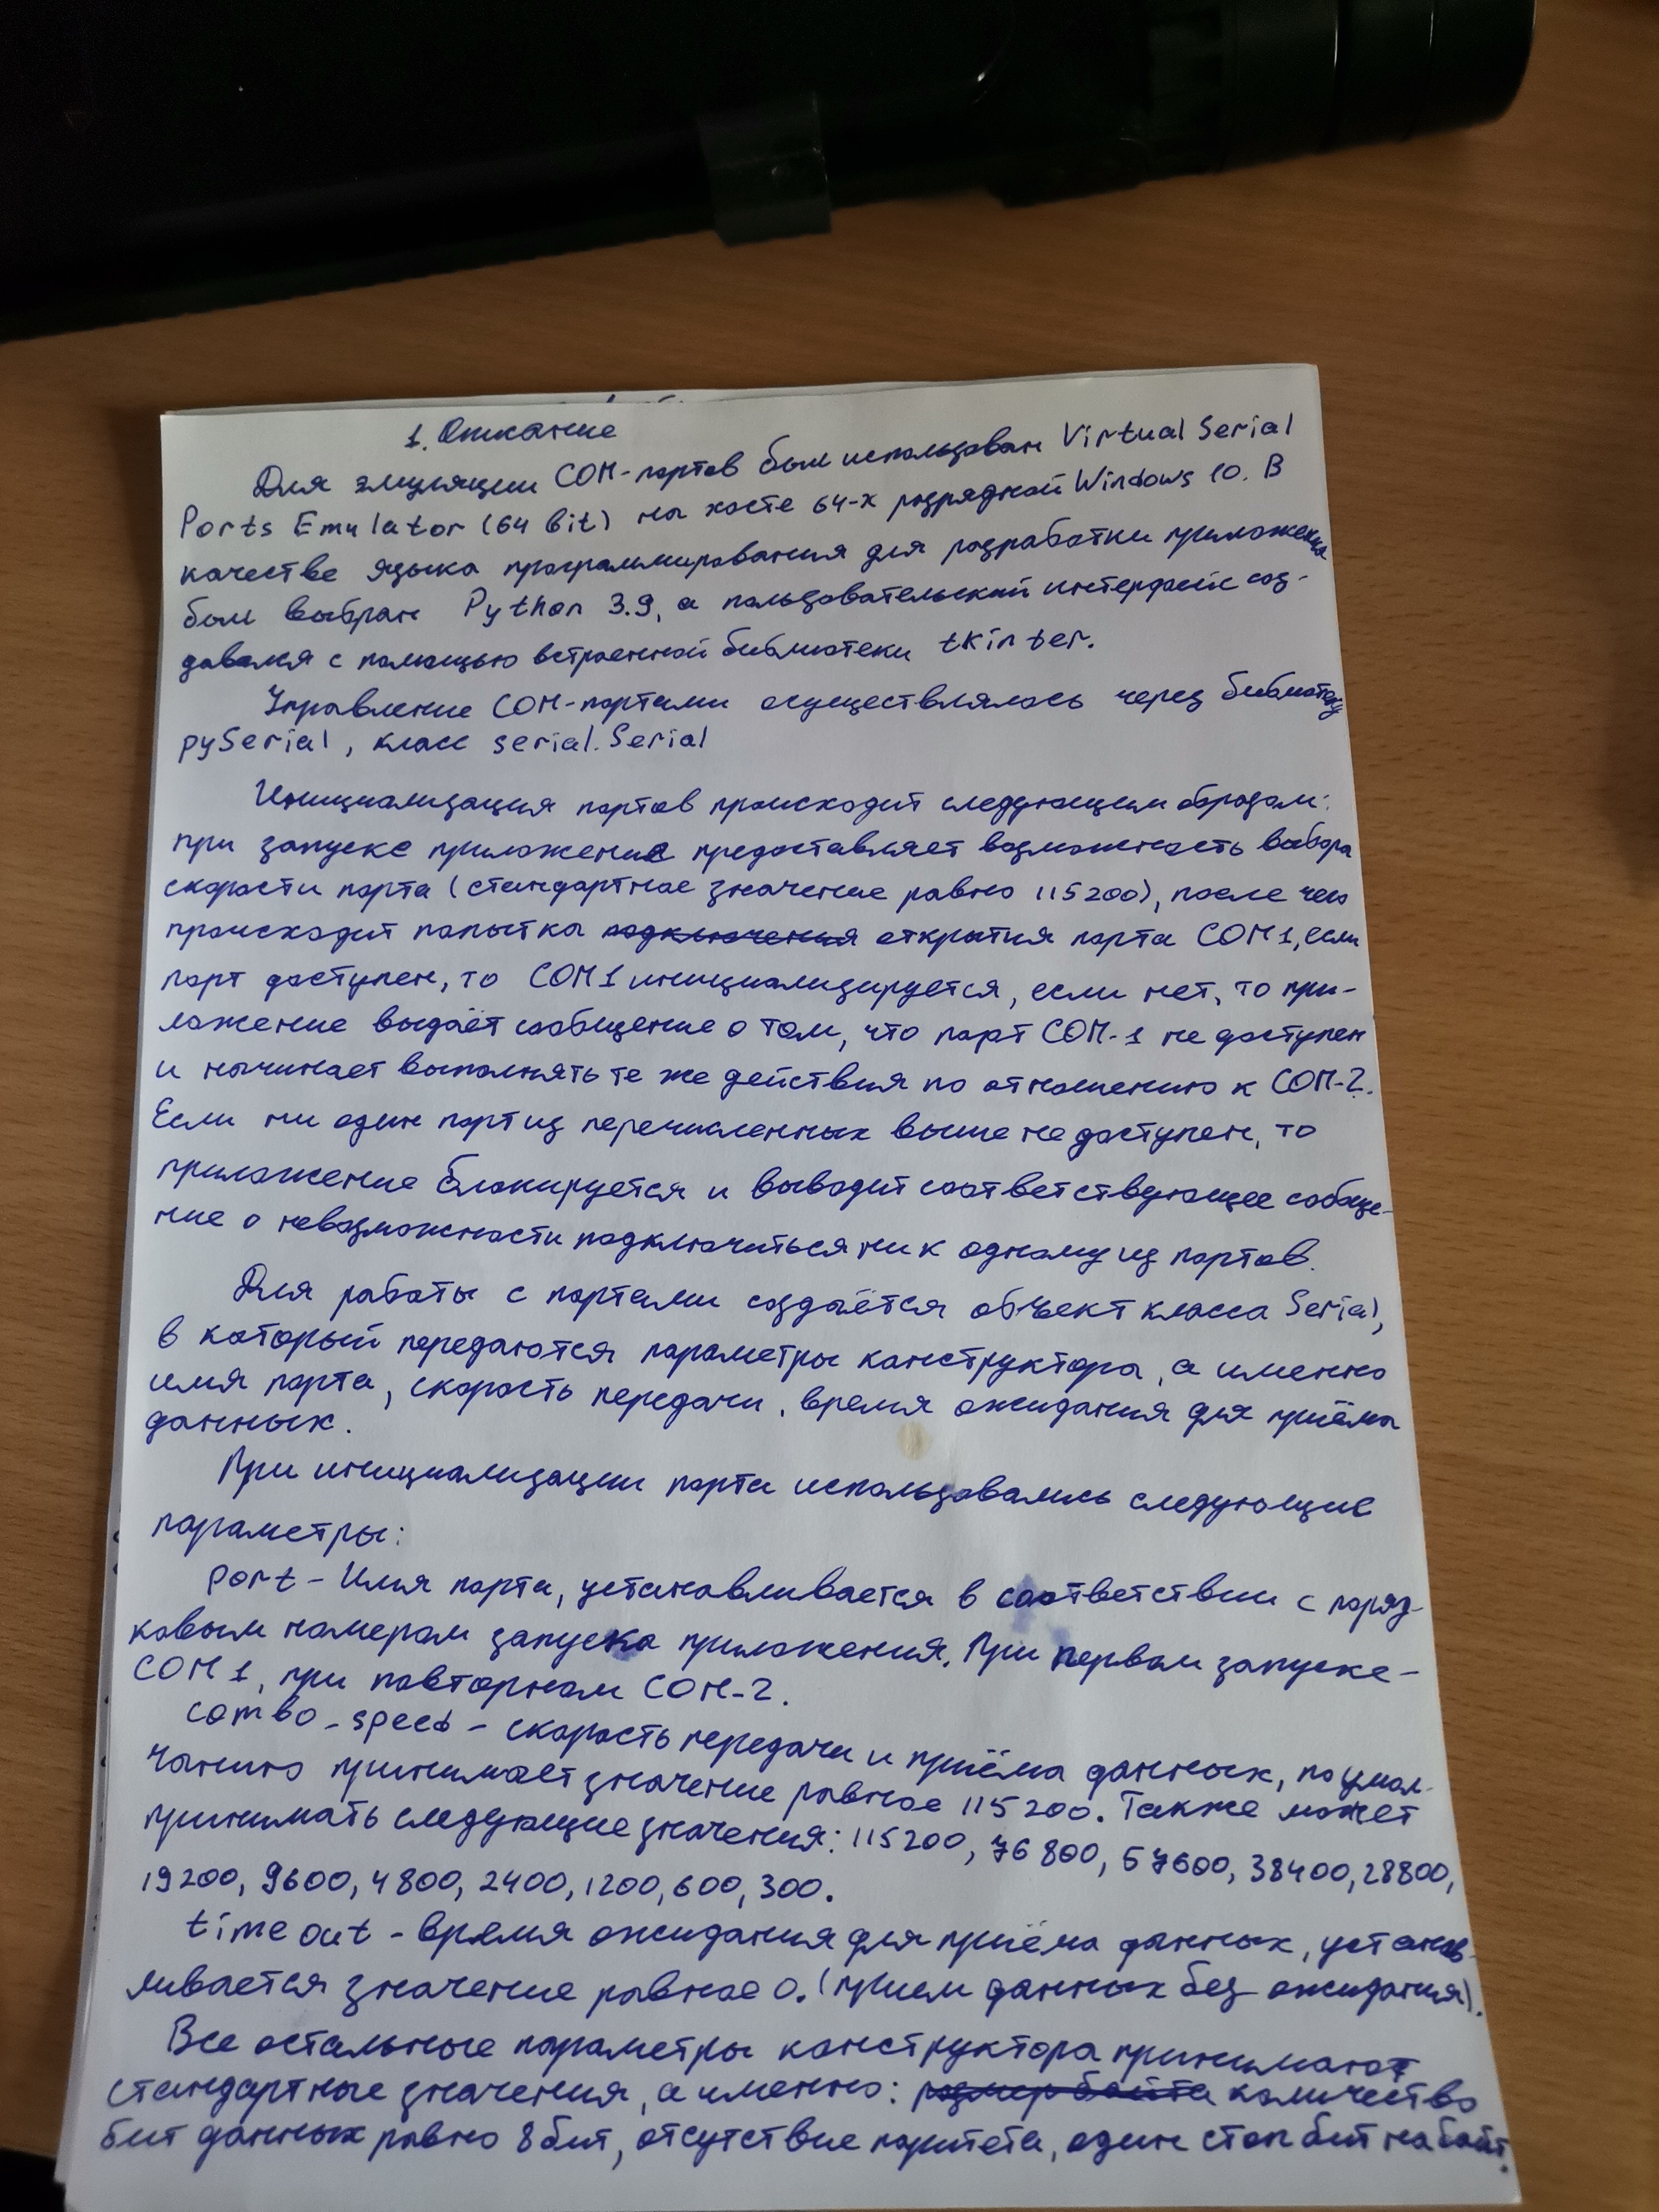 1. Описание
Для эмуляции COM-портов был использован Virtual Serial
Ports Emulator (64 bit) на хосте 64-х разрядной Windows 10. В
качестве языка программирования для разработки приложения
был выбран Python 3.9, а пользовательский интерфейс соз-
давался с помощью встроенной библиотеки tkinter.
Управление COM-портами осуществлялось через библиотеку
pySerial, класс serial.Serial
Инициализация портов происходит следующим образом:
при запуске приложение предоставляет возможность выбора
скорости порта (стандартное значение равно 115200), после чего
происходит попытка подключения открытия порта COM1, если
порт доступен, то COM1 инициализируется, если нет, то при-
ложение выдаёт сообщение о том, что порт COM-1 не доступен
и начинает выполнять те же действия по отношению к COM-2.
Если ни один порт из перечисленных выше не доступен, то
приложение блокируется и выводит соответствующее сообще-
ние о невозможности подключиться ни к одному из портов.
Для работы с портами создаётся объект класса Serial,
в который передаются параметры конструктора, а именно
имя порта, скорость передачи, время ожидания для приёма
данных.
При инициализации порта использовались следующие
параметры:
port - Имя порта, устанавливается в соответствии с поряд-
ковым номером запуска приложения. При первом запуске -
COM1, при повторном COM-2.
combo_speed - скорость передачи и приёма данных, по умол-
чанию принимает значение равное 115200. Также может
принимать следующие значения: 115200, 76800, 57600, 38400, 28800,
19200, 9600, 4800, 2400, 1200, 600, 300.
timeout - время ожидания для приёма данных, устанав-
ливается значение равное 0. (прием данных без ожидания).
Все остальные параметры конструктора принимают
стандартные значения, а именно: размер байта количество
бит данных равно 8 бит, отсутствие паритета, один стоп бит на байт.